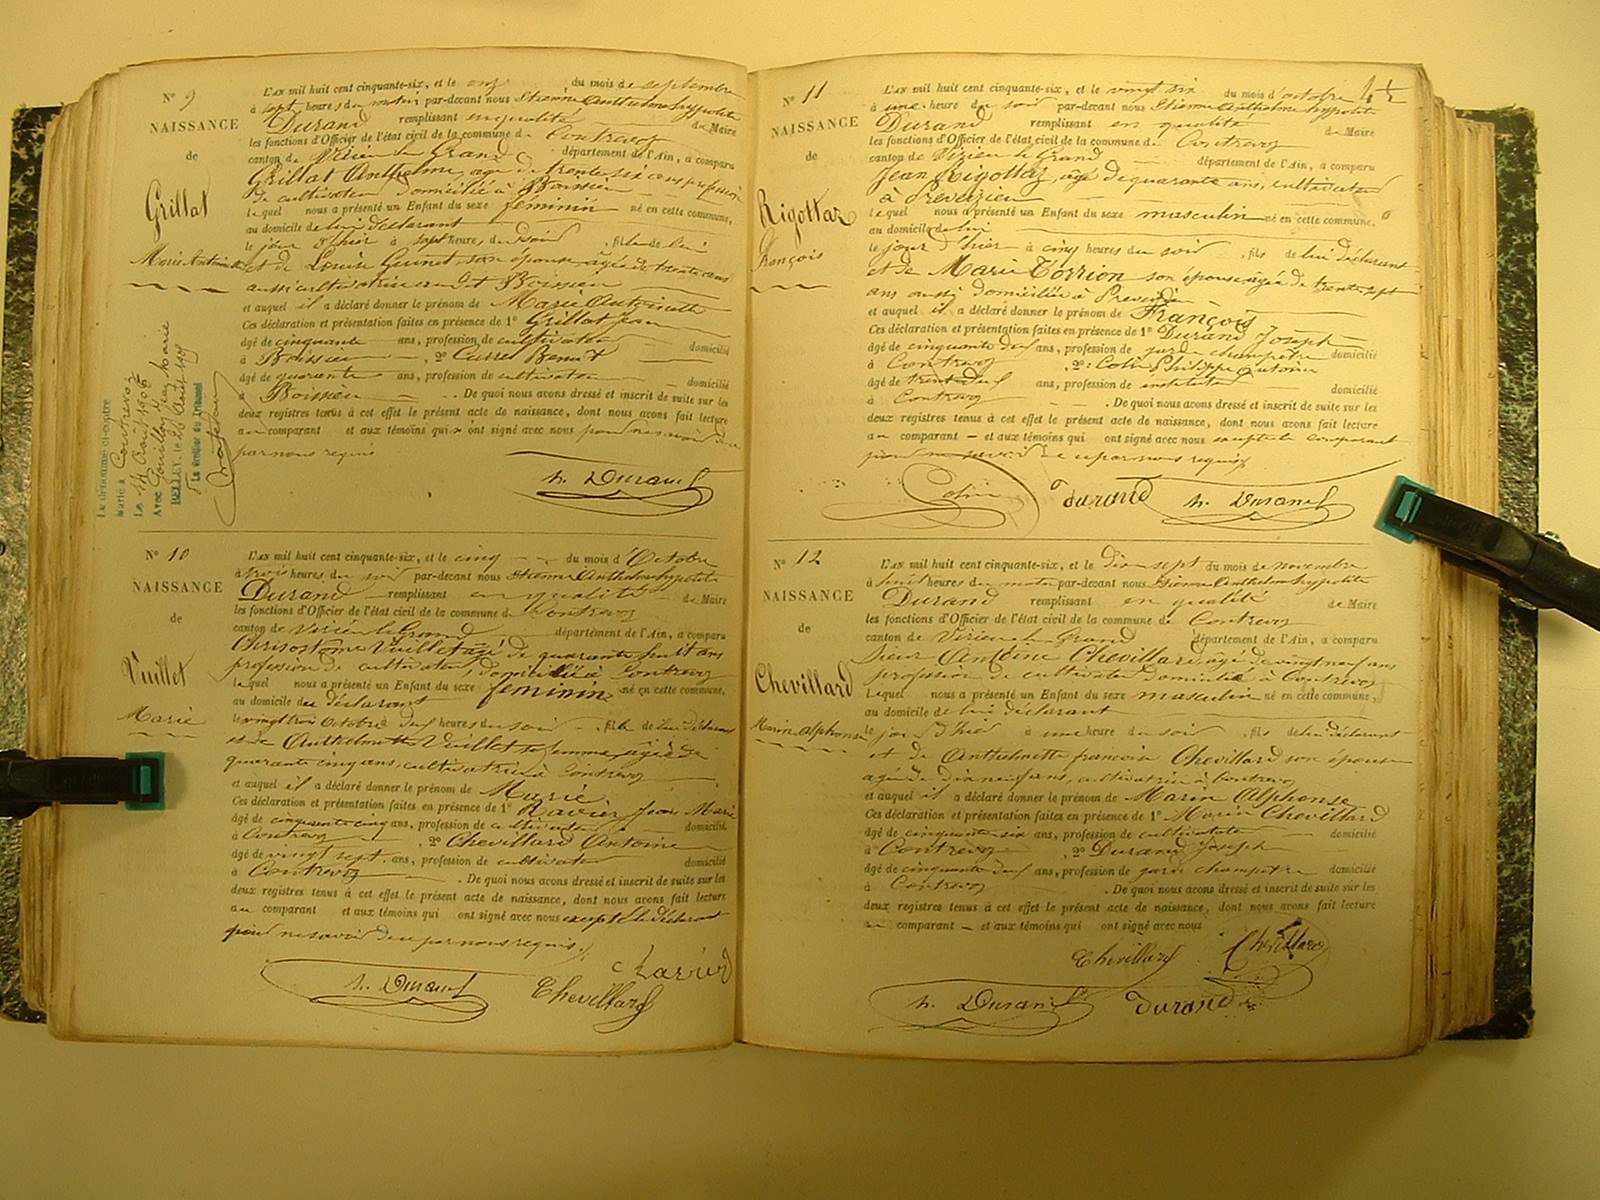 N° 9
NAISSANCE
de
Grillat
Marie Antoinette
L'AN mil huit cent cinquante-six, et le onze du mois de septembre
à sept heures du matin par-devant nous Etienne Anthelme hyppolite
Durand remplissant en qualité de Maire
les fonctions d'Officier de l'état civil de la commune de Contrevoz
canton de Virieu le Grand département de l'Ain, a comparu
Grillat Anthelme, âgé de trente six ans profession
de cultivateur domicilié à Boissieu
lequel nous a présenté un Enfant du sexe féminin né en cette commune,
au domicile de lui déclarant
le jour d'hier à sept heures, du soir, fille de lui
et de Louise Guinet, son épouse, âgée de trente ans
aussi cultivatrice au dit Boissieu
et auquel il a déclaré donner le prénom de Marie Antoinette
Ces déclaration et présentation faites en présence de 1° Grillat Jean
âgé de cinquante ans, profession de cultivateur domicilié
à Boissieu, 2° Carrel Benoit
âgé de quarante ans, profession de cultivateur domicilié
à Boissieu. De quoi nous avons dressé et inscrit de suite sur les
deux registres tenus à cet effet le présent acte de naissance, dont nous avons fait lecture
au comparant et aux témoins qui n'ont signé avec nous pour ne savoir de ce
par nous requis
h. Durand
Le dénommé ci-contre
marié à Contrevoz
Le 14 Août 1906
Avec Jean Marie
BELLEY, le 26 Août 1908
Le Greffier du Tribunal
N° 10
NAISSANCE
de
Vuillet
Marie
L'AN mil huit cent cinquante-six, et le cinq du mois d'Octobre
à trois heures du soir par-devant nous Etienne Anthelme hyppolite
Durand remplissant en qualité de Maire
les fonctions d'Officier de l'état civil de la commune de Contrevoz
canton de Virieu le Grand département de l'Ain, a comparu
Chrisostome Vuillet âgé de quarante huit ans
profession de cultivateur, domicilié à Contrevoz
lequel nous a présenté un Enfant du sexe féminin né en cette commune,
au domicile du déclarant
le vingt trois Octobre deux heures du soir, fille de lui déclarant
et de Anthelmette Vuillet sa femme âgée de
quarante cinq ans, cultivatrice à Contrevoz
et auquel il a déclaré donner le prénom de Marie
Ces déclaration et présentation faites en présence de 1° Ravier Jean Marie
âgé de cinquante cinq ans, profession de cultivateur domicilié
à Contrevoz, 2° Chevillard Antoine
âgé de vingt sept ans, profession de cultivateur domicilié
à Contrevoz. De quoi nous avons dressé et inscrit de suite sur les
deux registres tenus à cet effet le présent acte de naissance, dont nous avons fait lecture
au comparant et aux témoins qui ont signé avec nous excepté le déclarant
pour ne savoir de ce par nous requis.
Ravier
h. Durand Chevillard
N° 11
NAISSANCE
de
Rigottaz
François
L'AN mil huit cent cinquante-six, et le vingt six du mois d'octobre
à une heure du soir par-devant nous Etienne Anthelme hyppolite
Durand remplissant en qualité de Maire
les fonctions d'Officier de l'état civil de la commune de Contrevoz
canton de Virieu le Grand département de l'Ain, a comparu
Jean Rigottaz, âgé de quarante ans, cultivateur
à Preveizieu
lequel nous a présenté un Enfant du sexe masculin né en cette commune,
au domicile de lui
le jour d'hier à cinq heures du soir, fils de lui déclarant
et de Marie Torrion son épouse âgée de trente sept
ans aussi domiciliée à Preveizieu
et auquel il a déclaré donner le prénom de François
Ces déclaration et présentation faites en présence de 1° Durand Joseph
âgé de cinquante deux ans, profession de garde champêtre domicilié
à Contrevoz, 2° Colin Philippe Antoine
âgé de trente deux ans, profession de instituteur domicilié
à Contrevoz. De quoi nous avons dressé et inscrit de suite sur les
deux registres tenus à cet effet le présent acte de naissance, dont nous avons fait lecture
au comparant et aux témoins qui ont signé avec nous excepté le comparant
pour ne savoir de ce par nous requis
Colin durand h. Durand
N° 12
NAISSANCE
de
Chevillard
Marin alphonse
L'AN mil huit cent cinquante-six, et le dix sept du mois de novembre
à huit heures du matin par-devant nous Etienne Anthelme hyppolite
Durand remplissant en qualité de Maire
les fonctions d'Officier de l'état civil de la commune de Contrevoz
canton de Virieu le Grand département de l'Ain, a comparu
Sieur Antoine Chevillard, âgé de vingt neuf ans
profession de cultivateur domicilié à Contrevoz
Lequel nous a présenté un Enfant du sexe masculin né en cette commune,
au domicile de lui déclarant
le jour d'hier à une heure du soir, fils de lui déclarant
et de Anthelmette francoise Chevillard son épouse
âgée de dix neuf ans, cultivatrice à Contrevoz
et auquel il a déclaré donner le prénom de Marin Alphonse
Ces déclaration et présentation faites en présence de 1° Marin Chevillard
âgé de cinquante six ans, profession de cultivateur domicilié
à Contrevoz, 2° Durand Joseph
âgé de cinquante deux ans, profession de garde champêtre domicilié
à Contrevoz. De quoi nous avons dressé et inscrit de suite sur les
deux registres tenus à cet effet le présent acte de naissance, dont nous avons fait lecture
au comparant et aux témoins qui ont signé avec nous
Chevillard Chevillard
h. Durand durand